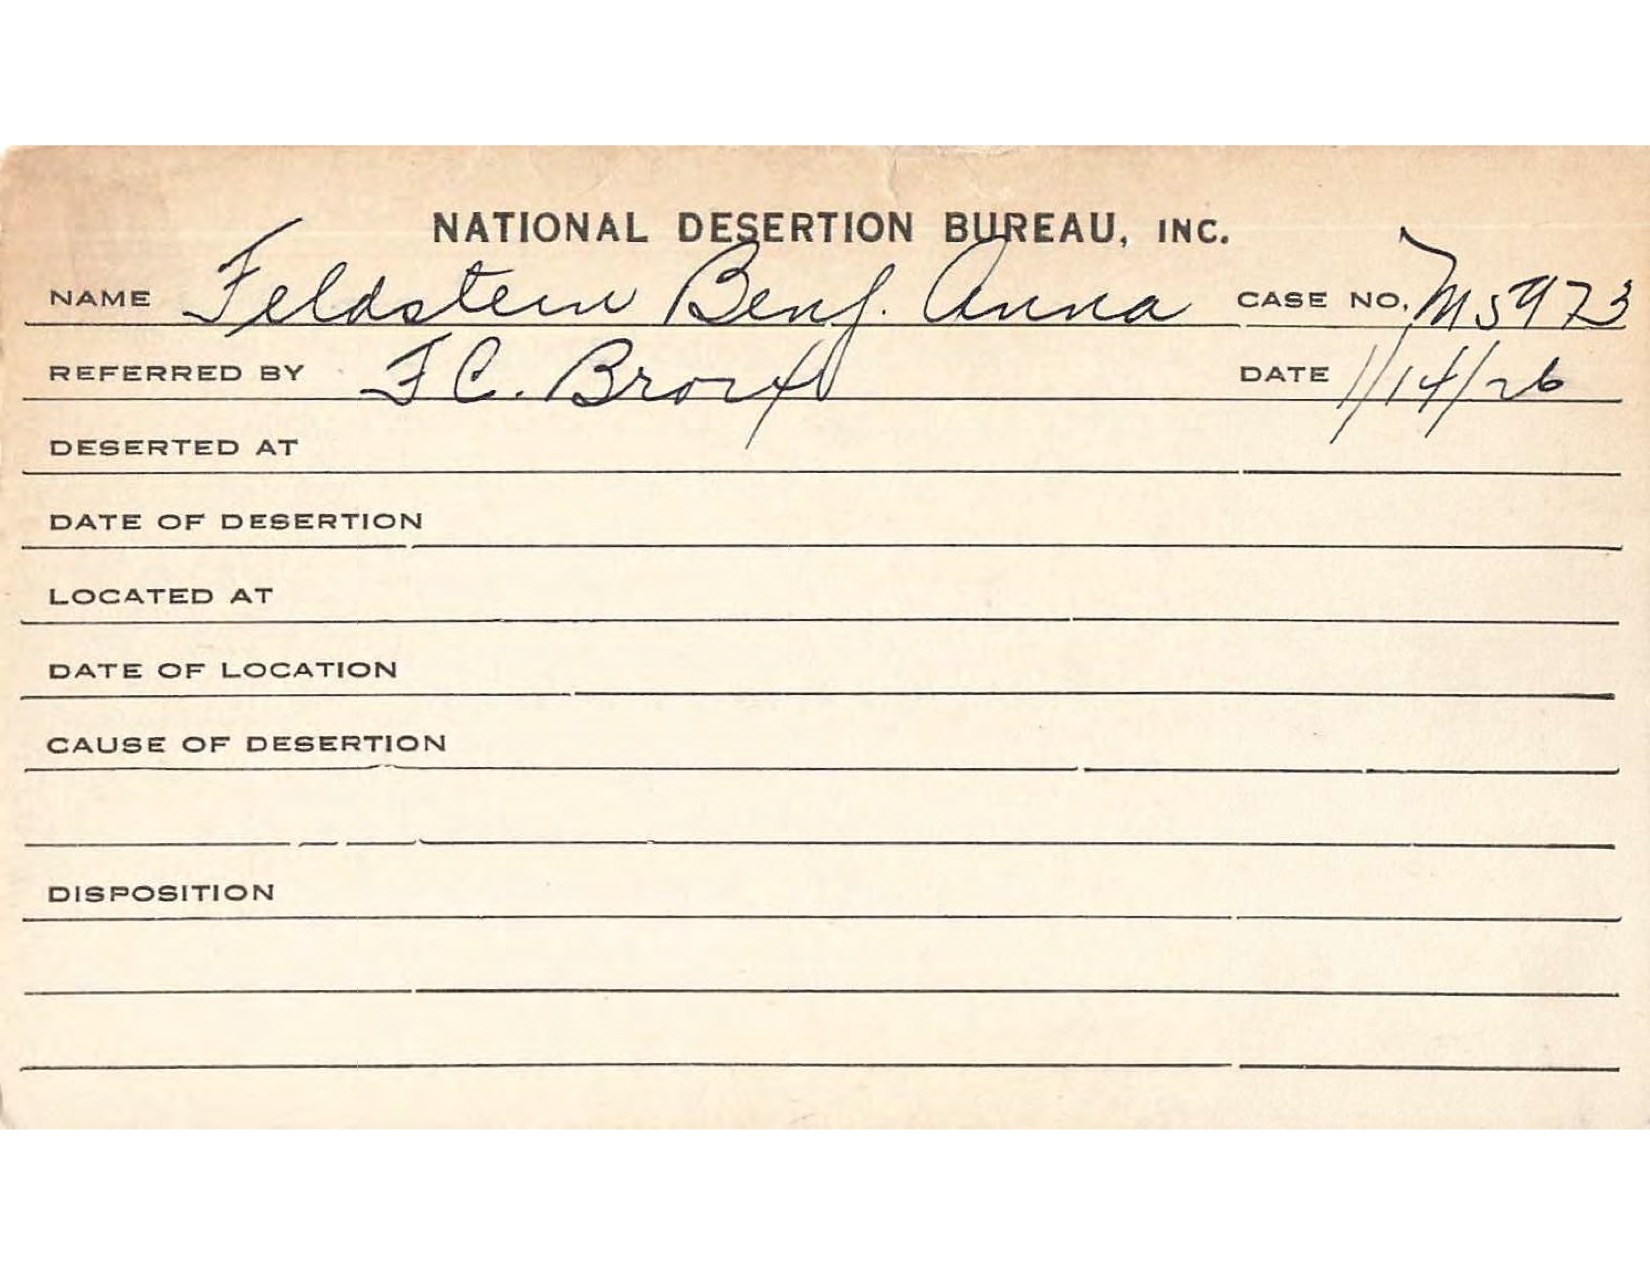 NATIONAL DESERTION BUREAU, INC.
NAME Feldstein Benj. Anna CASE NO. M5973
REFERRED BY F C. Bronx DATE 1/14/26
DESERTED AT
DATE OF DESERTION
LOCATED AT
DATE OF LOCATION
CAUSE OF DESERTION
DISPOSITION